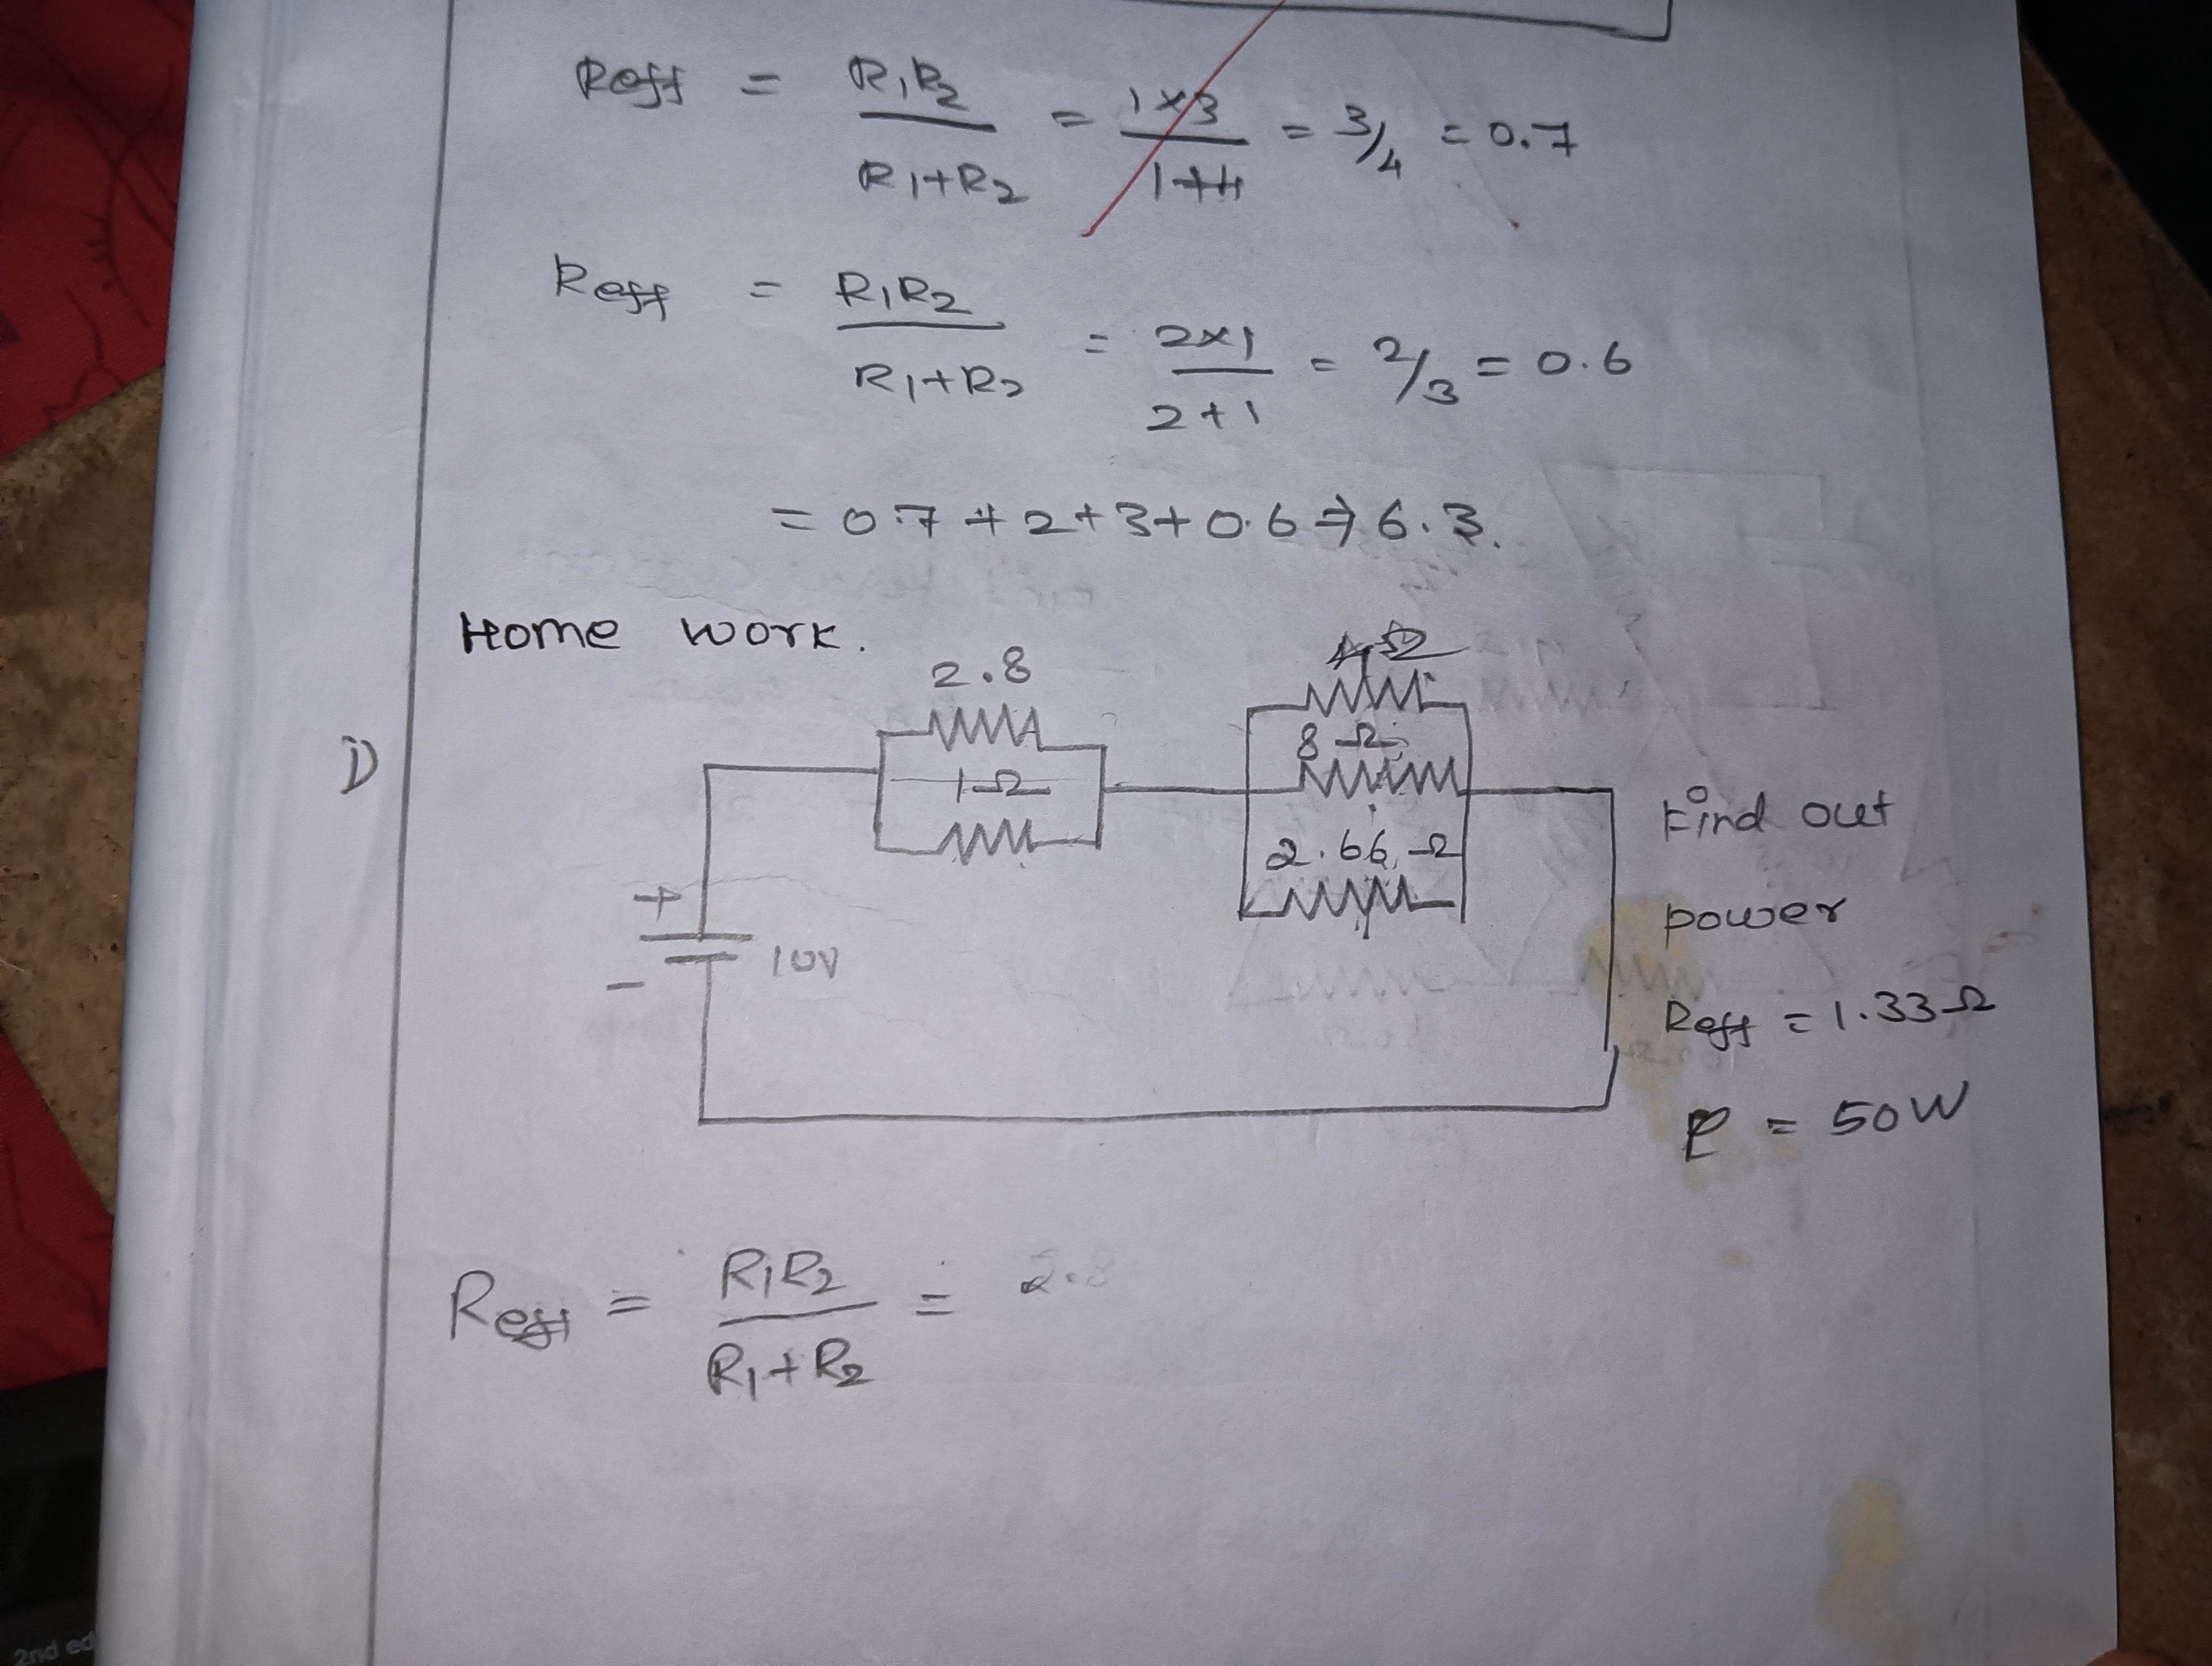 Reff = R1R2 / R1+R2 = 1x3 / 1+4 = 3/4 = 0.7
Reff = R1R2 / R1+R2 = 2x1 / 2+1 = 2/3 = 0.6
= 0.7 + 2 + 3 + 0.6 ⇒ 6.3.
Home work.
1)
2.8
1Ω
4Ω
8Ω
2.66Ω
+
-
10V
Find out
power
Reff = 1.33Ω
P = 50W
Reff = R1R2 / R1+R2 = 2.8